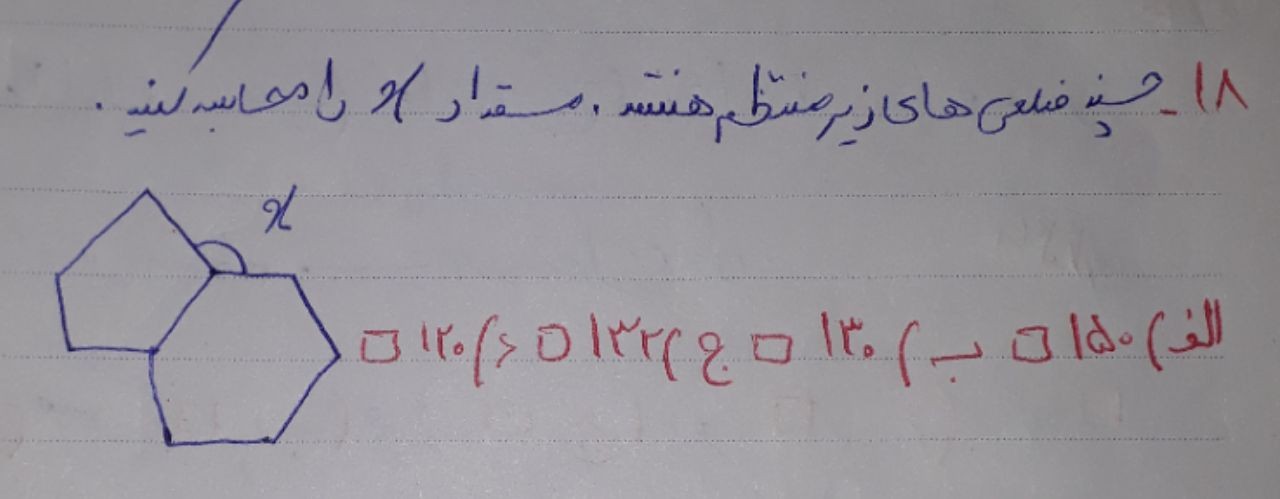 ۱۸- چند ضلعی های زیر منتظم هستند. مقدار x را محاسبه کنید.
x
الف) ۱۵۰ ب) ۱۳۰ ج) ۱۳۲ د) ۱۲۰